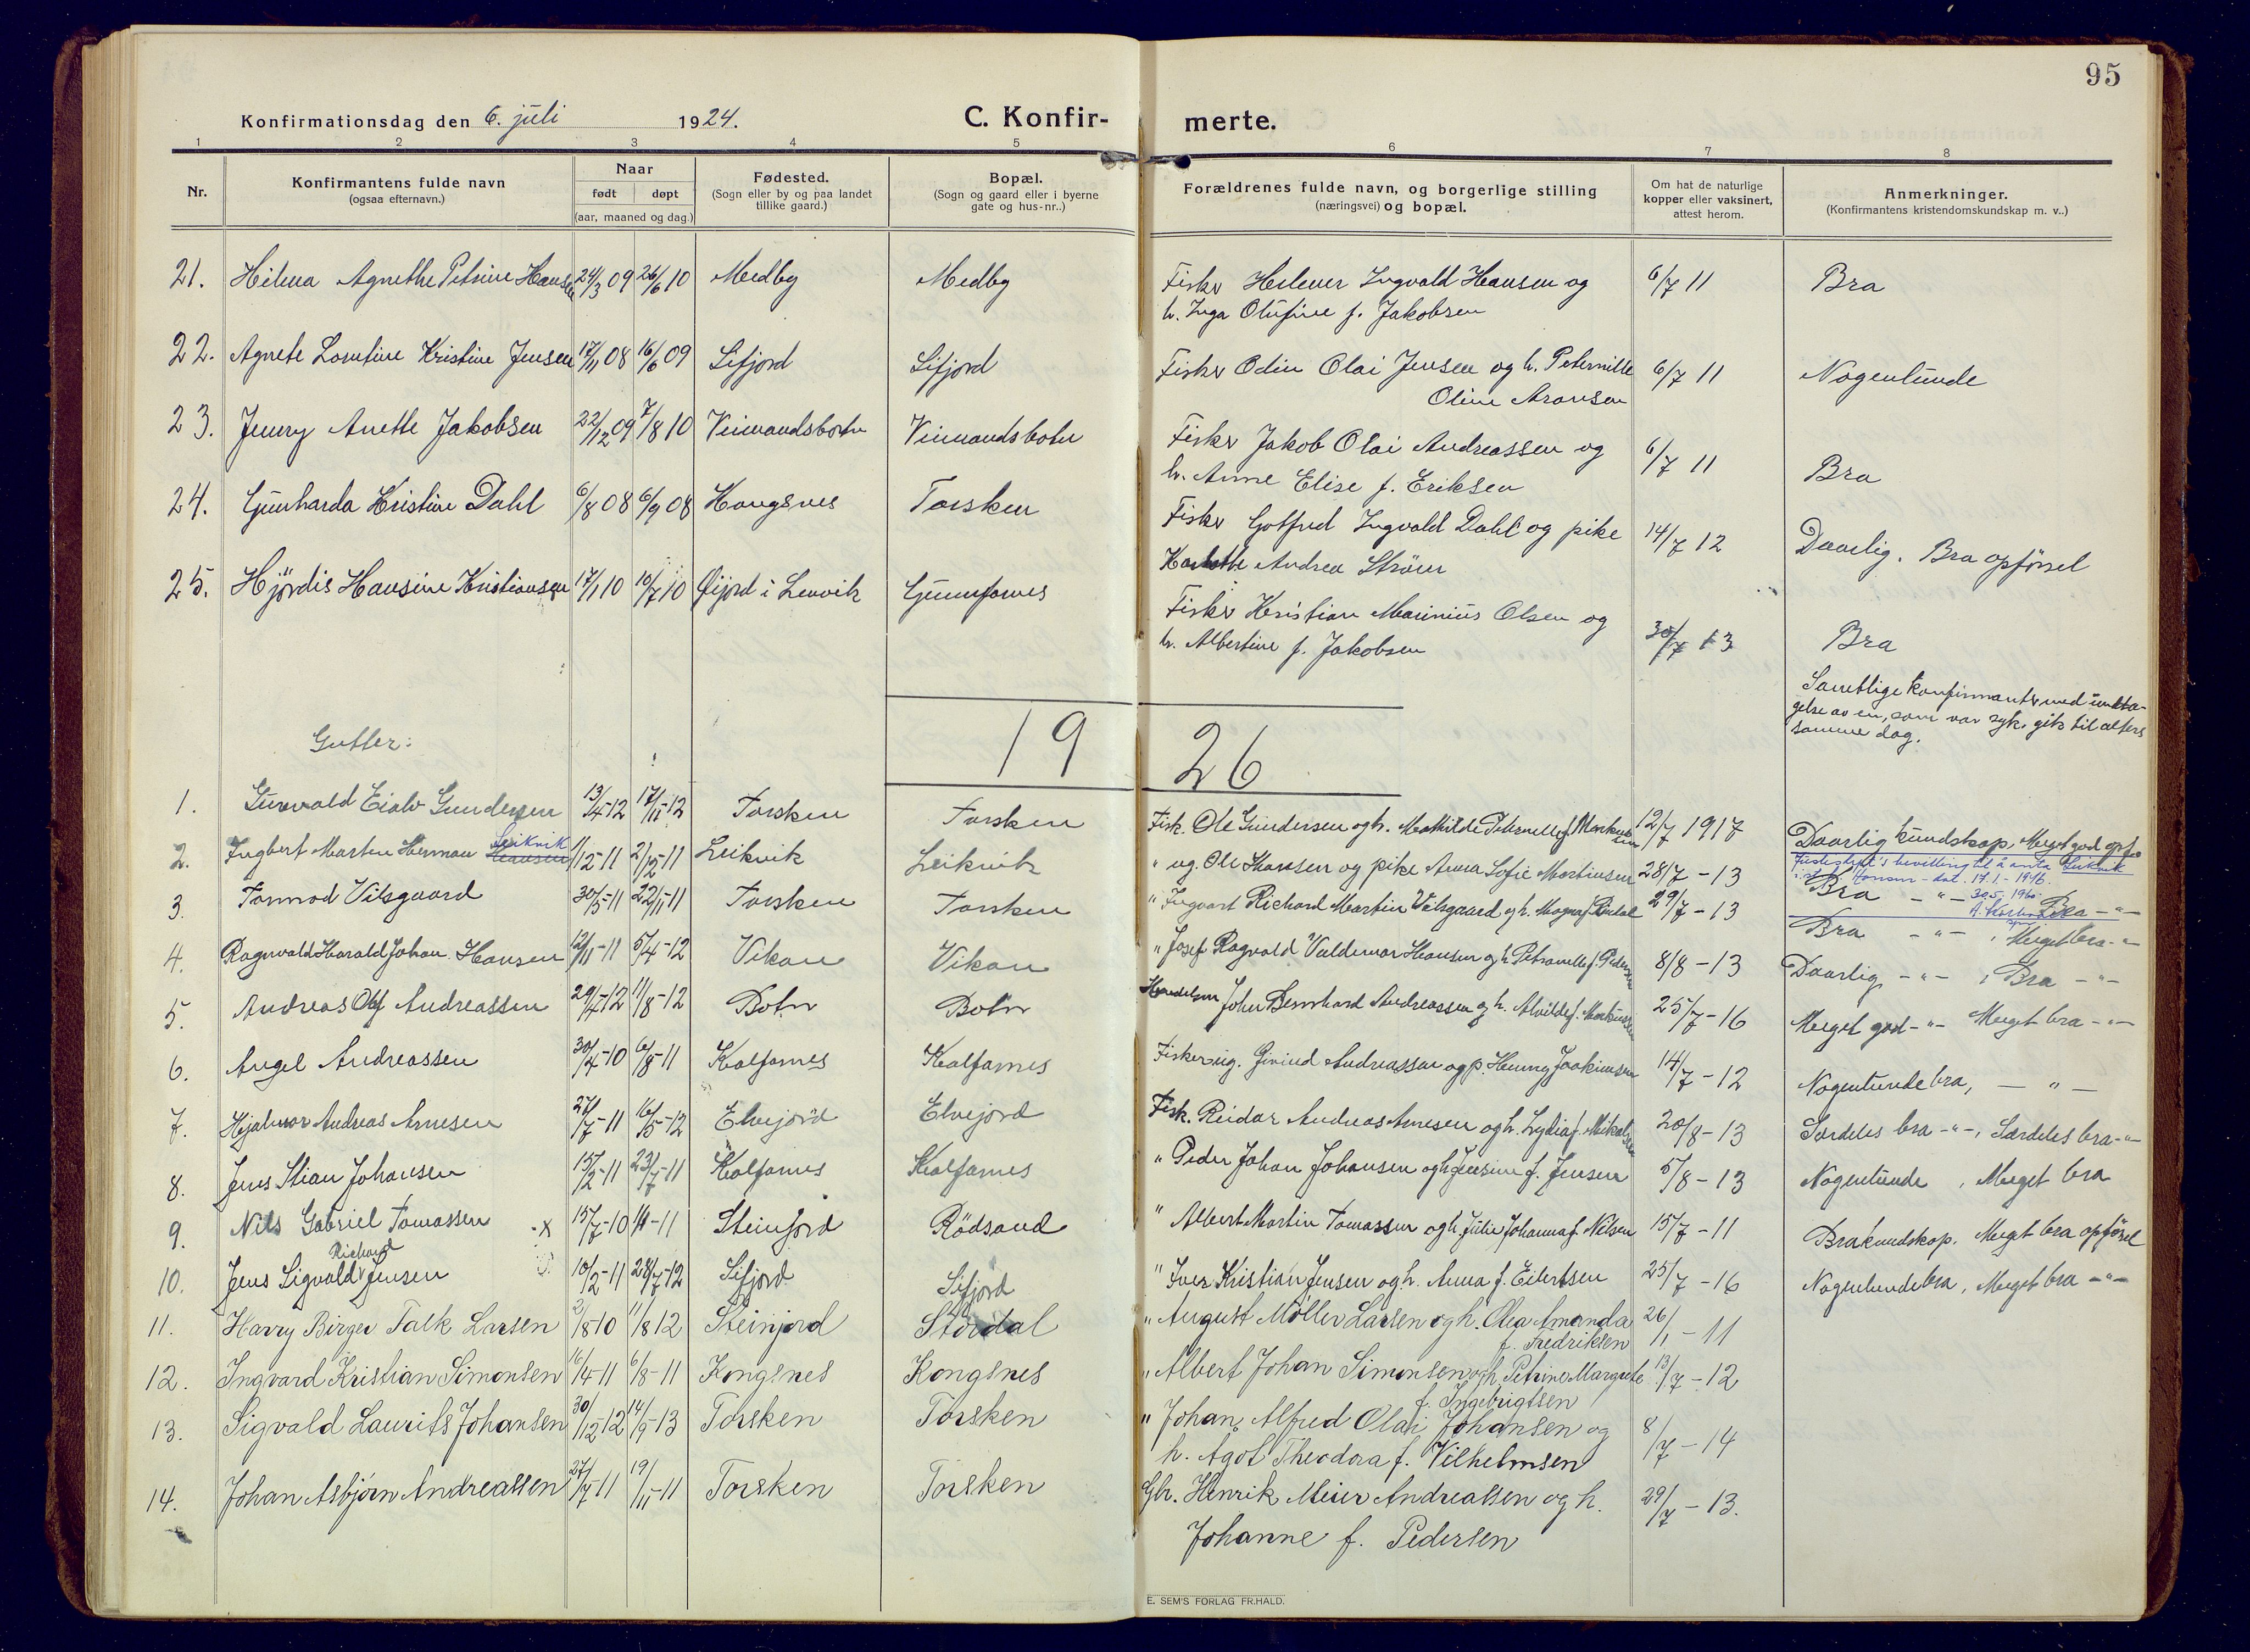 95
Konfirmationsdag den 6. juli 1924. C. Konfirmerte.
1 2 3 4 5 6 7 8
Nr. Konfirmantens fulde navn (ogsaa efternavn.) Naar født døpt (aar, maaned og dag.) Fødested. (Sogn eller by og paa landet tillike gaard.) Bopæl. (Sogn og gaard eller i byerne gate og hus-nr..) Forældrenes fulde navn, og borgerlige stilling (næringsvei) og bopæl. Om hat de naturlige kopper eller vaksinert, attest herom. Anmerkninger. (Konfirmantens kristendomskundskap m. v..)
21. Helena Agnethe Petrine Hansen 24/3 09 26/6 10 Medby Medby Fisker Heleuer Ingvald Hansen og 6/7 11 Bra
h. Inga Olufine f. Jakobsen
22. Agnete Lorntine Kristine Jensen 17/11 08 16/6 09 Sifjord Sifjord Fisker Odin Olai Jensen og h. Peternille 6/7 11 Nogenlunde
Oline Aronsen
23. Jenny Anette Jakobsen 22/12 09 7/8 10 Veimandsbotn Veimandsbotn Fisker Jakob Olai Andreassen og 6/7 11 Bra
h. Anne Elise f. Eriksen
24. Gunharda Kristine Dahl 6/8 08 6/9 08 Kongsnes Torsken Fisker Gotfred Ingvald Dahl og pike 14/7 12 Daarlig. Bra opførsel
Andrea Strøm
25. Hjørdis Hansine Kristiansen 17/1 10 10/7 10 Gifjord i Lenvik Grunnfarnes Fisker Kristian Marinius Olsen og 30/7 13 Bra
h. Albertine f. Jakobsen
Samtlige konfirmanter med undta-
gelse av en, som var syk, gik til alters
samme dag.
Gutter: 19 26
1. Gunvald Eialv Gundersen 13/4-12 17/11-12 Torsken Torsken Fisk. Ole Gundersen og h. Mathilde Petrnelle f. Markussen 12/7 1917 Daarlig kundskap, Meget god opf.
2. Ingbert Marten Herman Hansen Leikvik 1/12-11 2/12-11 Leikvik Leikvik " ug. Ole Hansen og pike Anna Sofie Martinsen 28/7-13 Bra -"- Bra -"-
bevilling til å anta Leikvik
i st. f. Hansen - dat. 17.1-1946.
3. Tormod Vilsgaard 30/5-11 22/11-11 Torsken Torsken " Ingvart Richard Martin Vilsgaard og h. Magna f. 29/7-13 Bra -"-, Meget bra -"-
4. Ragnvald Harald Johan Hansen 12/11-11 5/4-12 Vikan Vikan " Josef Ragvald Valdemar Hansen og h. Petranelle f. Pedersen 8/8-13 Daarlig -"-, Bra -"-
5. Andreas Olaf Andreassen 29/7-12 11/8-12 Botn Botn Handelsm John Bernhard Andreassen og h. Alvilde f. Markussen 25/7-16 Meget god -"- Meget bra -"-
6. Angel Andreassen 30/4-10 6/8-11 Kalfarnes Kalfarnes Fisker ug. Eivind Andreassen og p. Henny Joakimsen 14/7-12 Nogenlunde bra, — " —
7. Hjalmar Andreas Arnesen 27/7-11 16/5-12 Elvejord Elvejord Fisk. Reidar Andreas Arnesen og h. Lydia f. Mikalsen 20/8-13 Særdeles bra -"-, Særdeles bra -"-
8. Jens Stian Johansen 15/2-11 23/7-11 Kalfarnes Kalfarnes " Peder Johan Johansen og h. Jensine f. Jensen 5/8-13 Nogenlunde, Meget bra
9. Nils Gabriel Tomassen -x 15/7-10 -11 Steinfjord Rödsand " Albert Martin Tomassen og h. Julie Johanna f. Nilsen 15/7-11 Bra kundskap. Meget bra opførsel
10. Jens Sigvald Richard Jensen 10/2-11 28/7-12 Sifjord Sifjord " Iver Kristian Jensen og h. Anna f. Eilertsen 25/7-16 Nogenlunde bra, Meget bra -"-
11. Harry Birger Falk Larsen 2/8-10 11/8 12 Steinfjord Stordal " August Möller Larsen og h. Olea Amanda 26/1-11
f. Fredriksen
12. Ingvard Kristian Simonsen 16/4-11 6/8-11 Kongsnes Kongsnes " Albert Johan Simonsen og h. Petrine Margrete 13/7-12
f. Ingebrigtsen
13. Sigvald Laurits Johansen 30/12-12 14/9-13 Torsken Torsken " Johan Alfred Olai Johansen og 8/7-14
h. Agot Theodora f. Vilhelmsen
14. Johan Asbjørn Andreassen 27/7-11 19/11-11 Torsken Torsken Gbr. Henrik Meier Andreassen og h. 29/7-13.
Johanne f. Pedersen
E. SEM'S FORLAG FR.HALD.